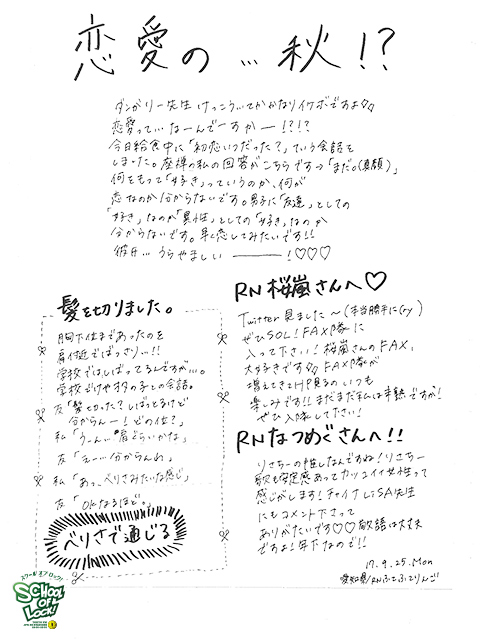 恋愛の…秋!?
ダンガリー先生 けっこう…てかかなりイケボですよね
恋愛って…なーんでーすかー!?!?
今日給食中に「初恋いつだった?」ていう会話を
しました。座標の私の回答がこちらです→「まだ。(真顔)」
何をもって「好き」っていうのか、何が
恋なのか分からないです。男子に「友達」としての
「好き」なのか「異性」としての「好き」なのか
分からないです。早く恋してみたいです!!
彼氏…うらやましい――――!♡♡♡
髪を切りました。
胸下位まであったのを
肩付近でばっさり…!!
学校ではしばってるんですが…。
学校でけやヲタの子との会話。
友「髪切った?しばっとるけど
分からんー!どの位?」
私「うーん…肩ぐらいかな」
友「えー…分からんわ」
私「あっ、べりさみたいな感じ」
友「OKなるほど。」
べりさで通じる
RN桜嵐さんへ♡
Twitter見ました〜(本当勝手にry)
ぜひSOL!FAX隊に
入って下さい!桜嵐さんのFAX、
大好きです FAX隊が
増えてきてHP見るのいつも
楽しみです!!まだまだ私は半熟ですが!
ぜひ入隊して下さい!
RNなつめぐさんへ!!
りさちーの推しなんですね!りさちー
歌も安定感あってカッコイイ女性って
感じがします!チャイナLiSA先生
にもコメント下さって
ありがたいです♡♡敬語は大丈夫
ですよ!年下なので!!
17.9.25.Mon
愛知県/RNふてふてりんご
スクールオブロック!
SCHOOL OF LOCK!